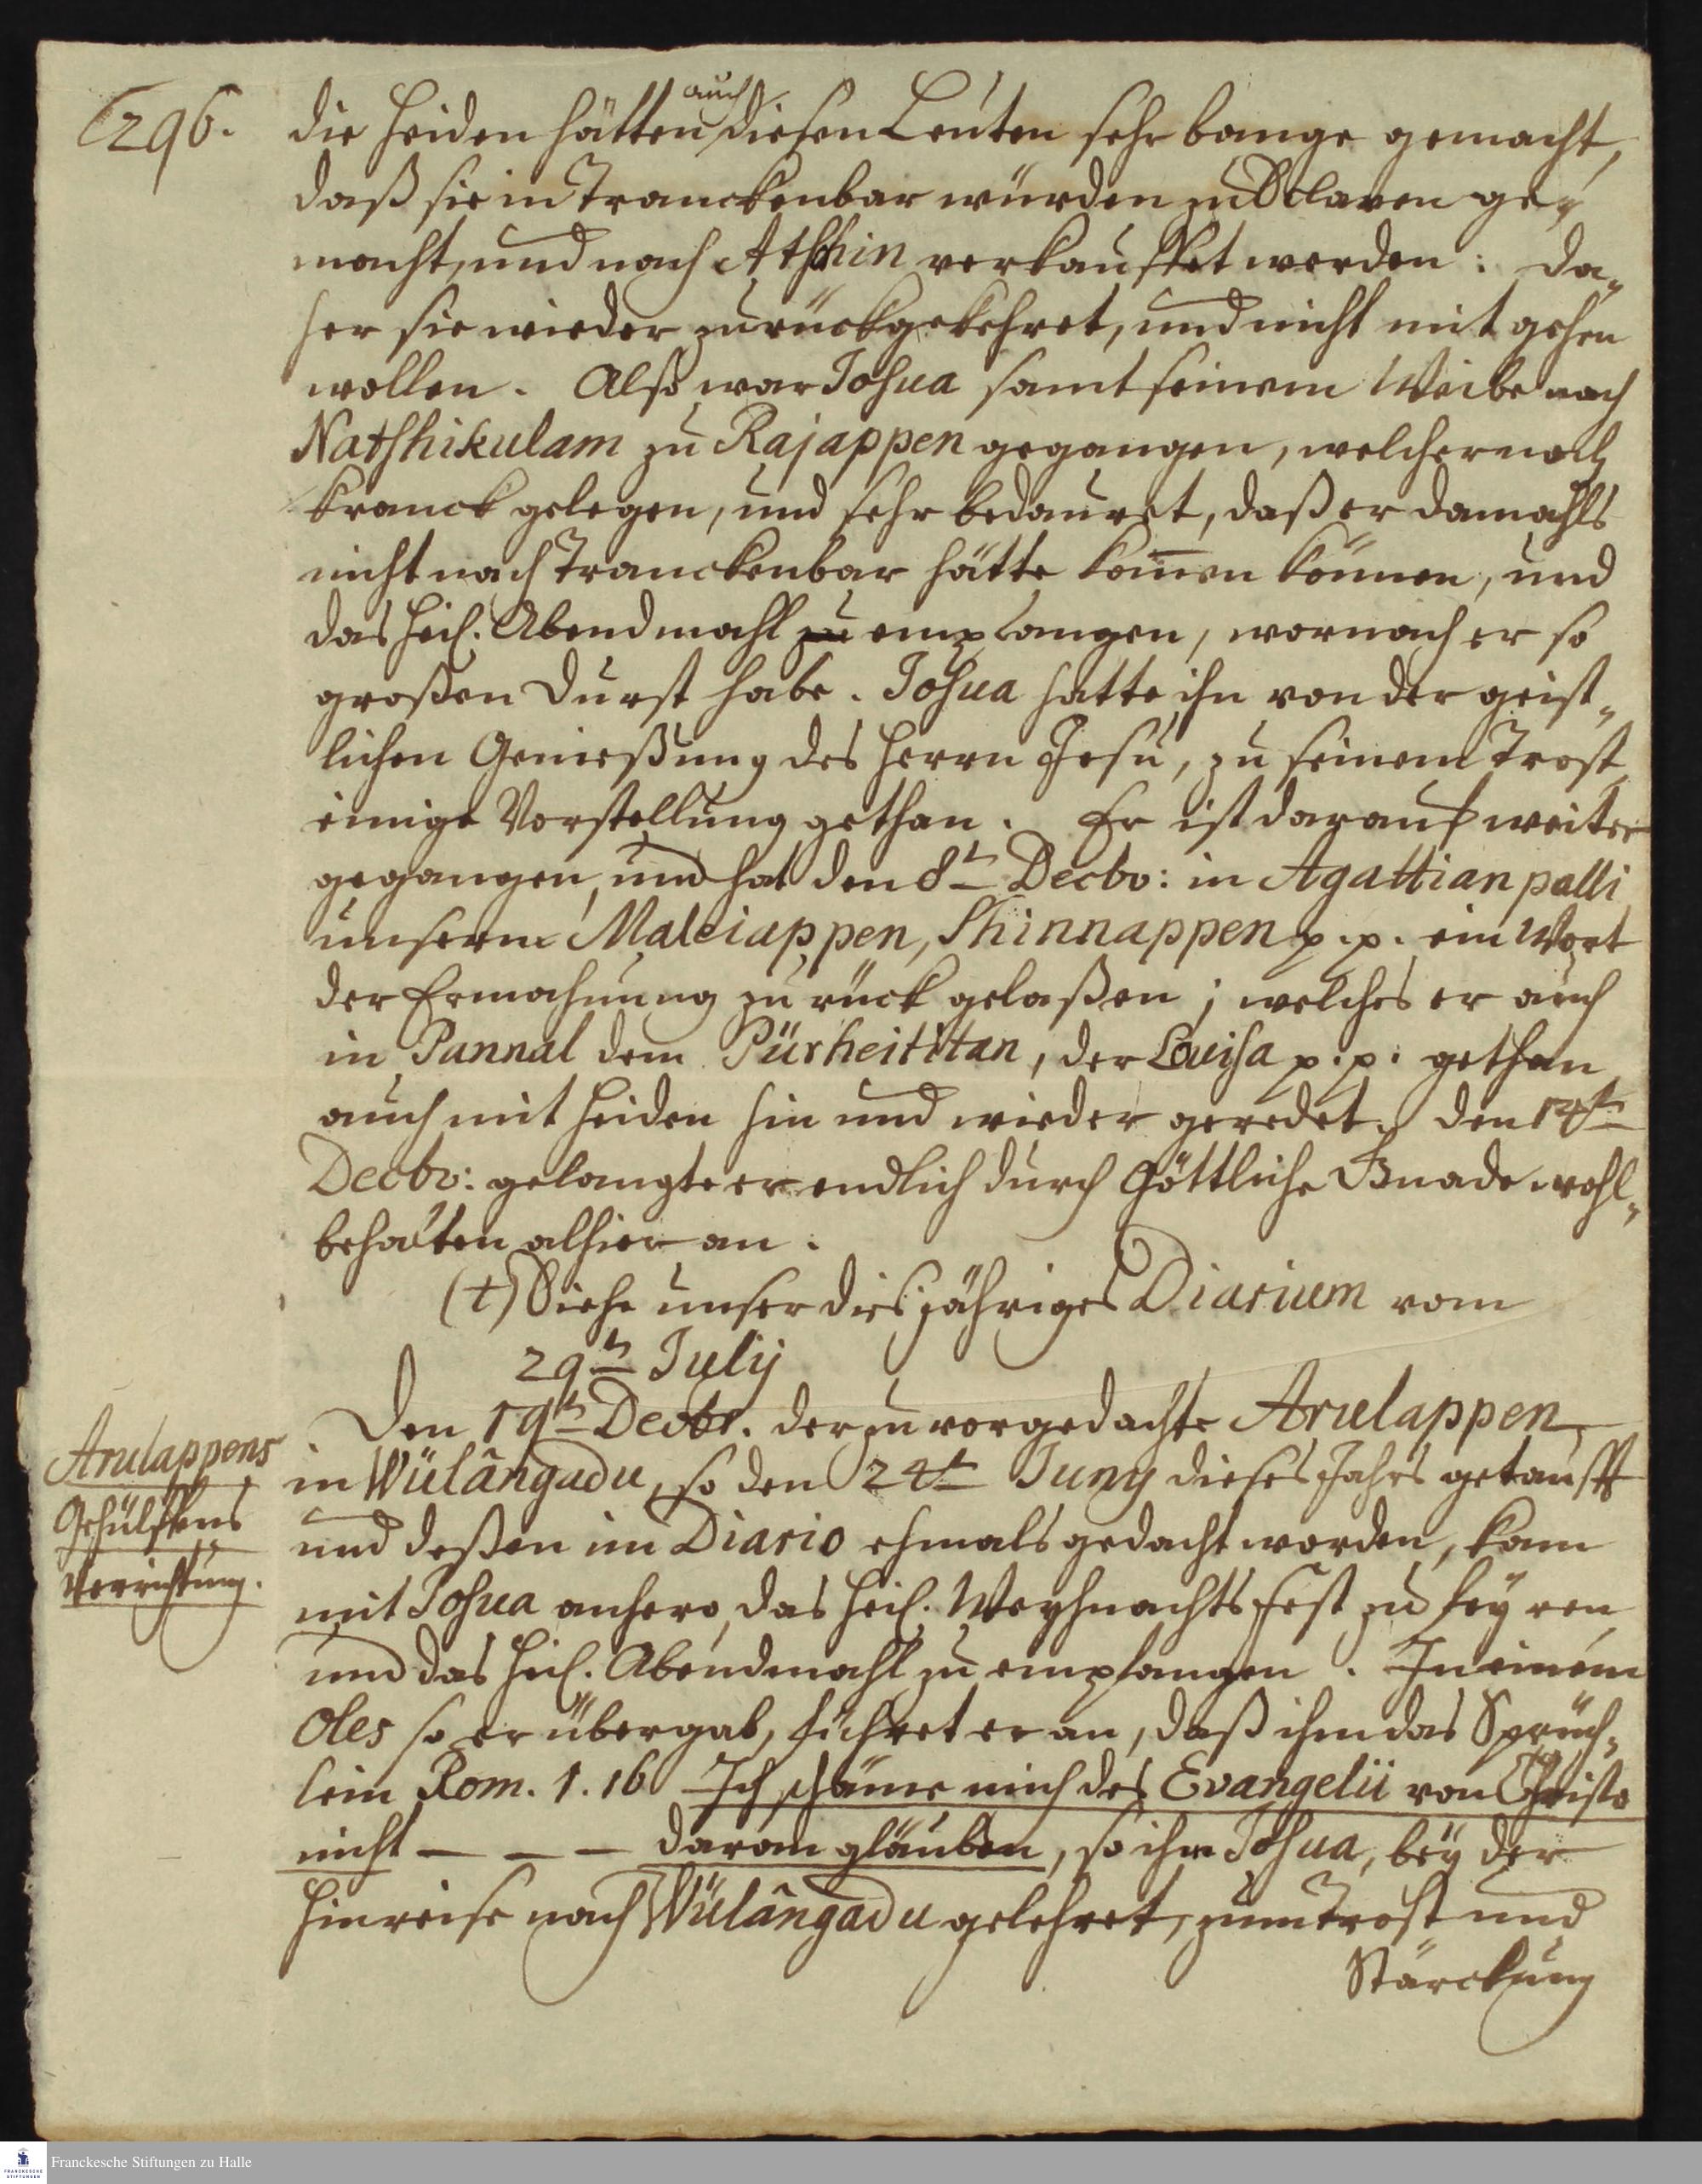 1296.
die Heiden hätten auch diesen Leuten sehr bange gemacht,
daß sie in Tranckenbar würden zu Sclaven ge-
macht, und nach Atshin verkauffet werden: da-
her sie wieder zurückgekehret, und nicht mit gehen
wollen. Also war Josua samt seinem Weibe nach
Natshikulam zu Rajappen gegangen, welcher noch
kranck gelegen, und sehr bedauret, daß er damahls
nicht nach Tranckenbar hätte kom̅en können, und
das Heil. Abendmahl zu empfangen, wornach er so
großen Durst habe. Josua hatte ihn von der geist-
lichen Genießung des Herrn Jesu, zu seinem Trost,
einige Vorstellung gethan. Er ist darauf weiter
gegangen, und hat den 8tn Decbr: in Agattianpalli
unserm Maleiappen, Shinnappen p. p. ein Wort
der Ermahnung zurück gelaßen; welches er auch
in Pannal dem Pürheititan, der Louisa p. p. gethan
auch mit Heiden hin und wieder geredet. Den 17tn
Decbr: gelangte er endlich durch Göttliche Gnade wohl-
behalten alhier an.
(t) Siehe unser diesjähriges Diarium vom
29tn Julij
Den 19tn Decbr. der zuvorgedachte Arulappen,
in Wülângadu, so den 24tn Juny dieses Jahrs getaufft
und deßen im Diario ehmals gedacht worden, kam
mit Josua anhero, das Heil. Weyhnachts Fest zu feyren
und das Heil. Abendmahl zu empfangen. In einem
Oles so er übergab, führet er an, daß ihm das Sprüch-
lein Rom. 1. 16 Ich schäme mich des Evangelii von Christo
nicht — — — daran gläuben, so ihn Josua, bey der
Hinreise nach Wülângadu gelehret, zum Trost und
Stärckung
Arulappens
Gehülffens
Verrichtung.
Franckesche Stiftungen zu Halle
FRANCKESCHE
STIFTUNGEN